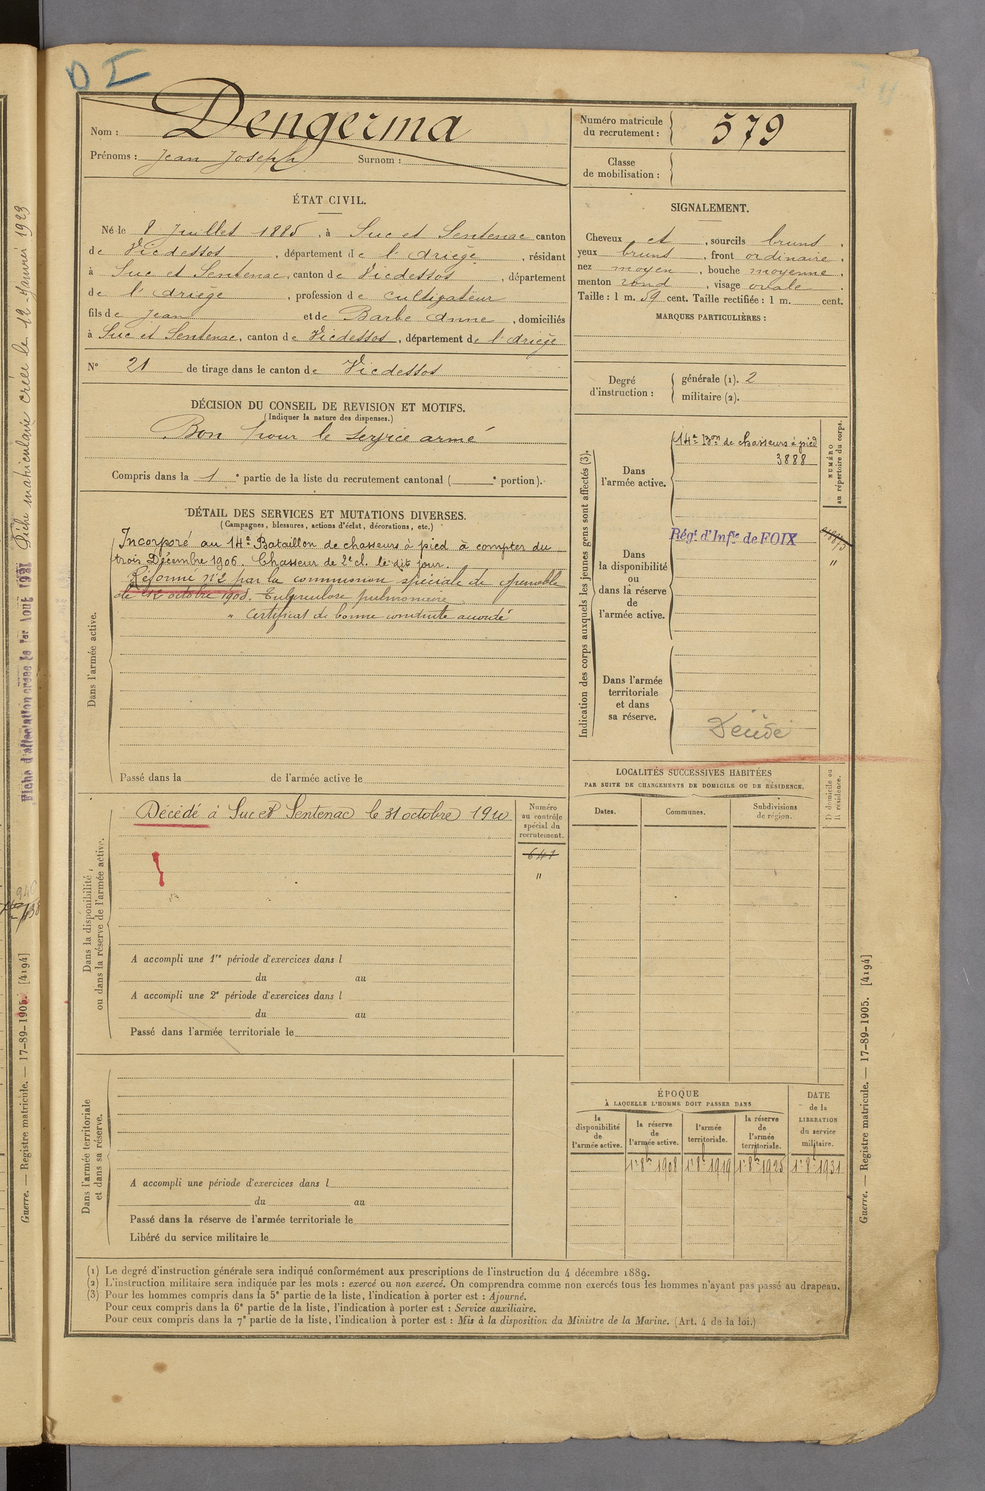 D I
Nom : Dengerma
Prénoms : Jean Joseph Surnom :
Numéro matricule du recrutement : 579
Classe de mobilisation :
ÉTAT CIVIL.
Né le 8 Juillet 1885, à Suc et Sentenac canton
de Vicdessos, département de l'Ariège, résidant
à Suc et Sentenac, canton de Vicdessos, département
de l'Ariège, profession de cultivateur
fils de Jean et de Barbe Anne, domiciliés
à Suc et Sentenac, canton de Vicdessos, département de l'Ariège
N° 21 de tirage dans le canton de Vicdessos
SIGNALEMENT.
Cheveux et, sourcils bruns.
yeux bruns, front ordinaire.
nez moyen, bouche moyenne.
menton rond, visage ovale.
Taille : 1 m. 59 cent. Taille rectifiée : 1 m. cent.
MARQUES PARTICULIÈRES :
Degré d'instruction : générale (1). 2
militaire (2).
DÉCISION DU CONSEIL DE REVISION ET MOTIFS.
(Indiquer la nature des dispenses.)
Bon pour le service armé
Compris dans la 1e partie de la liste du recrutement cantonal ( e portion).
DÉTAIL DES SERVICES ET MUTATIONS DIVERSES.
(Campagnes, blessures, actions d'éclat, décorations, etc.)
Dans l'armée active.
Incorporé au 14e Bataillon de chasseurs à pied à compter du
trois Décembre 1906. Chasseur de 2e cl. le dit jour.
Réformé n°2 par la commission spéciale de Grenoble
du 12 octobre 1908. Tuberculose pulmonaire
" Certificat de bonne conduite accordé
Passé dans la de l'armée active le
Indication des corps auxquels les jeunes gens sont affectés (3).
NUMÉRO au répertoire du corps.
Dans l'armée active.
14e Bon de chasseurs à pied
3888
Dans la disponibilité ou dans la réserve de l'armée active.
Régt d'Infie de FOIX
"
Dans l'armée territoriale et dans sa réserve.
Décédé
LOCALITÉS SUCCESSIVES HABITÉES
PAR SUITE DE CHANGEMENTS DE DOMICILE OU DE RÉSIDENCE.
D domicile ou R résidence.
Dates. Communes. Subdivisions de région.
Dans la disponibilité ou dans la réserve de l'armée active.
Décédé à Suc et Sentenac le 31 octobre 1910
Numéro au contrôle spécial du recrutement.
641
"
A accompli une 1re période d'exercices dans l
du au
A accompli une 2e période d'exercices dans l
du au
Passé dans l'armée territoriale le
Dans l'armée territoriale et dans sa réserve.
A accompli une période d'exercices dans l
du au
Passé dans la réserve de l'armée territoriale le
Libéré du service militaire le
ÉPOQUE
À LAQUELLE L'HOMME DOIT PASSER DANS
la disponibilité de l'armée active.
la réserve de l'armée active.
l'armée territoriale.
la réserve de l'armée territoriale.
DATE de la LIBÉRATION du service militaire.
1r 8bre 1908 1r 8bre 1919 1r 8bre 1925 1r 8bre 1931
(1) Le degré d'instruction générale sera indiqué conformément aux prescriptions de l'instruction du 4 décembre 1889.
(2) L'instruction militaire sera indiquée par les mots : exercé ou non exercé. On comprendra comme non exercés tous les hommes n'ayant pas passé au drapeau.
(3) Pour les hommes compris dans la 5e partie de la liste, l'indication à porter est : Ajourné.
Pour ceux compris dans la 6e partie de la liste, l'indication à porter est : Service auxiliaire.
Pour ceux compris dans la 7e partie de la liste, l'indication à porter est : Mis à la disposition du Ministre de la Marine. (Art. 4 de la loi.)
Guerre. — Registre matricule. — 17-89-1905. [4194]
Guerre. — Registre matricule. — 17-89-1905. [4194]
Fiche matriculaire créée le 12 Janvier 1923
Fiche d'affectation créée le 1er Aout 1921